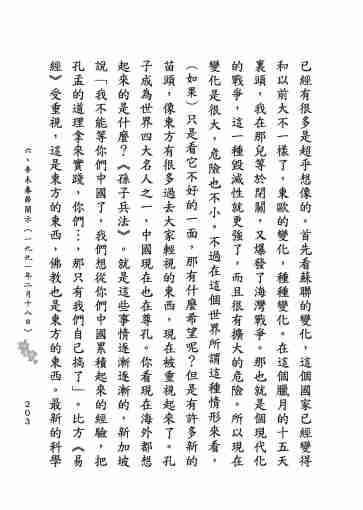 已經有很多是超乎想像的。首先看蘇聯的變化，這個國家已經變得
和以前大不一樣了，東歐的變化，種種變化。在這個臘月的十五天
裏頭，我在那兒等於閉關，又爆發了海灣戰爭。那也就是個現代化
的戰爭，這一種毀滅性就更強了。而且很有擴大的危險。所以現在
變化是很大，危險也不小，不過在這個世界所謂這種情形來看，
（如果）只是看它不好的一面，那有什麼希望呢？但是有許多新的
苗頭，像東方有很多過去大家輕視的東西，現在被重視起來了。孔
子成為世界四大名人之一，中國現在也在尊孔。你看現在海外都想
起來的是什麼？《孫子兵法》。就是這些事情逐漸逐漸的，新加坡
說「我不能等你們中國了，我們想從你們中國累積起來的經驗，把
孔孟的道理拿來實踐，你們…，那只有我們自己搞了」。比方《易
經》受重視，這是東方的東西，佛教也是東方的東西。最新的科學
六、辛未春節開示（一九九一年二月十八日） 203